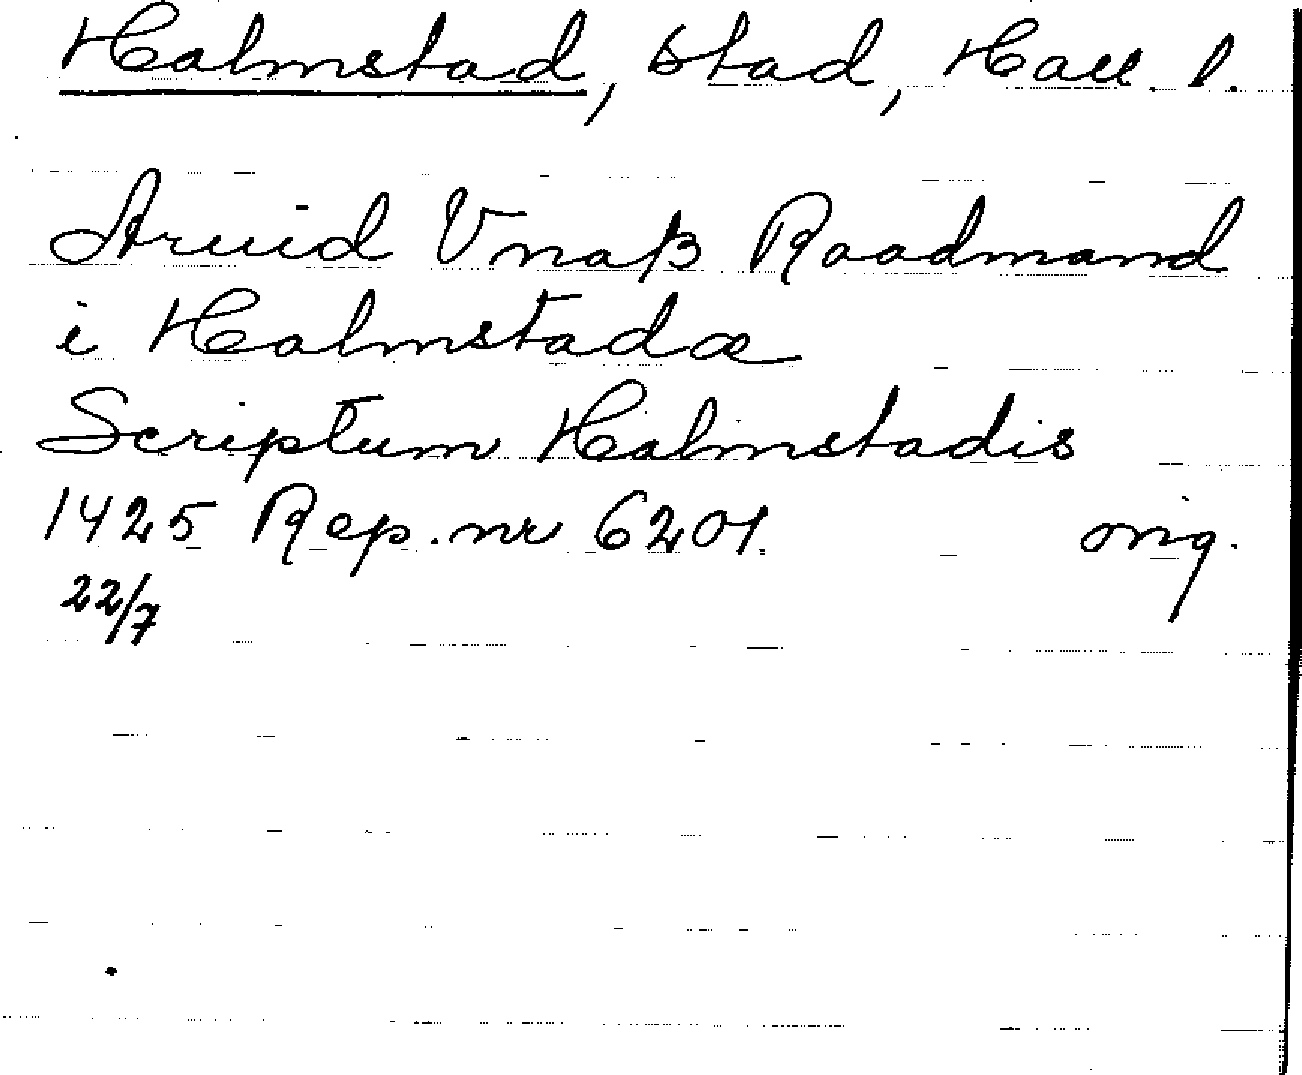 Halmstad, stad, Hall. l.
Aruid Vnaß Raadmand
i Halmstadæ
Scriptum Halmstadis
1425 Rep. nr 6201. orig.
22/7